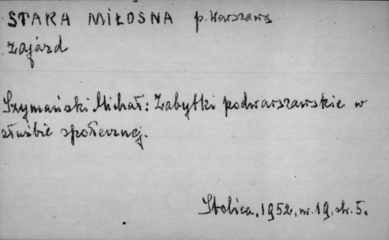 STARA MIŁOSNA p. Warszawa
Zajazd
Szymański Michał: Zabytki podwarszawskie w
służbie społecznej.
Stolica, 1952, nr. 19, str. 5.